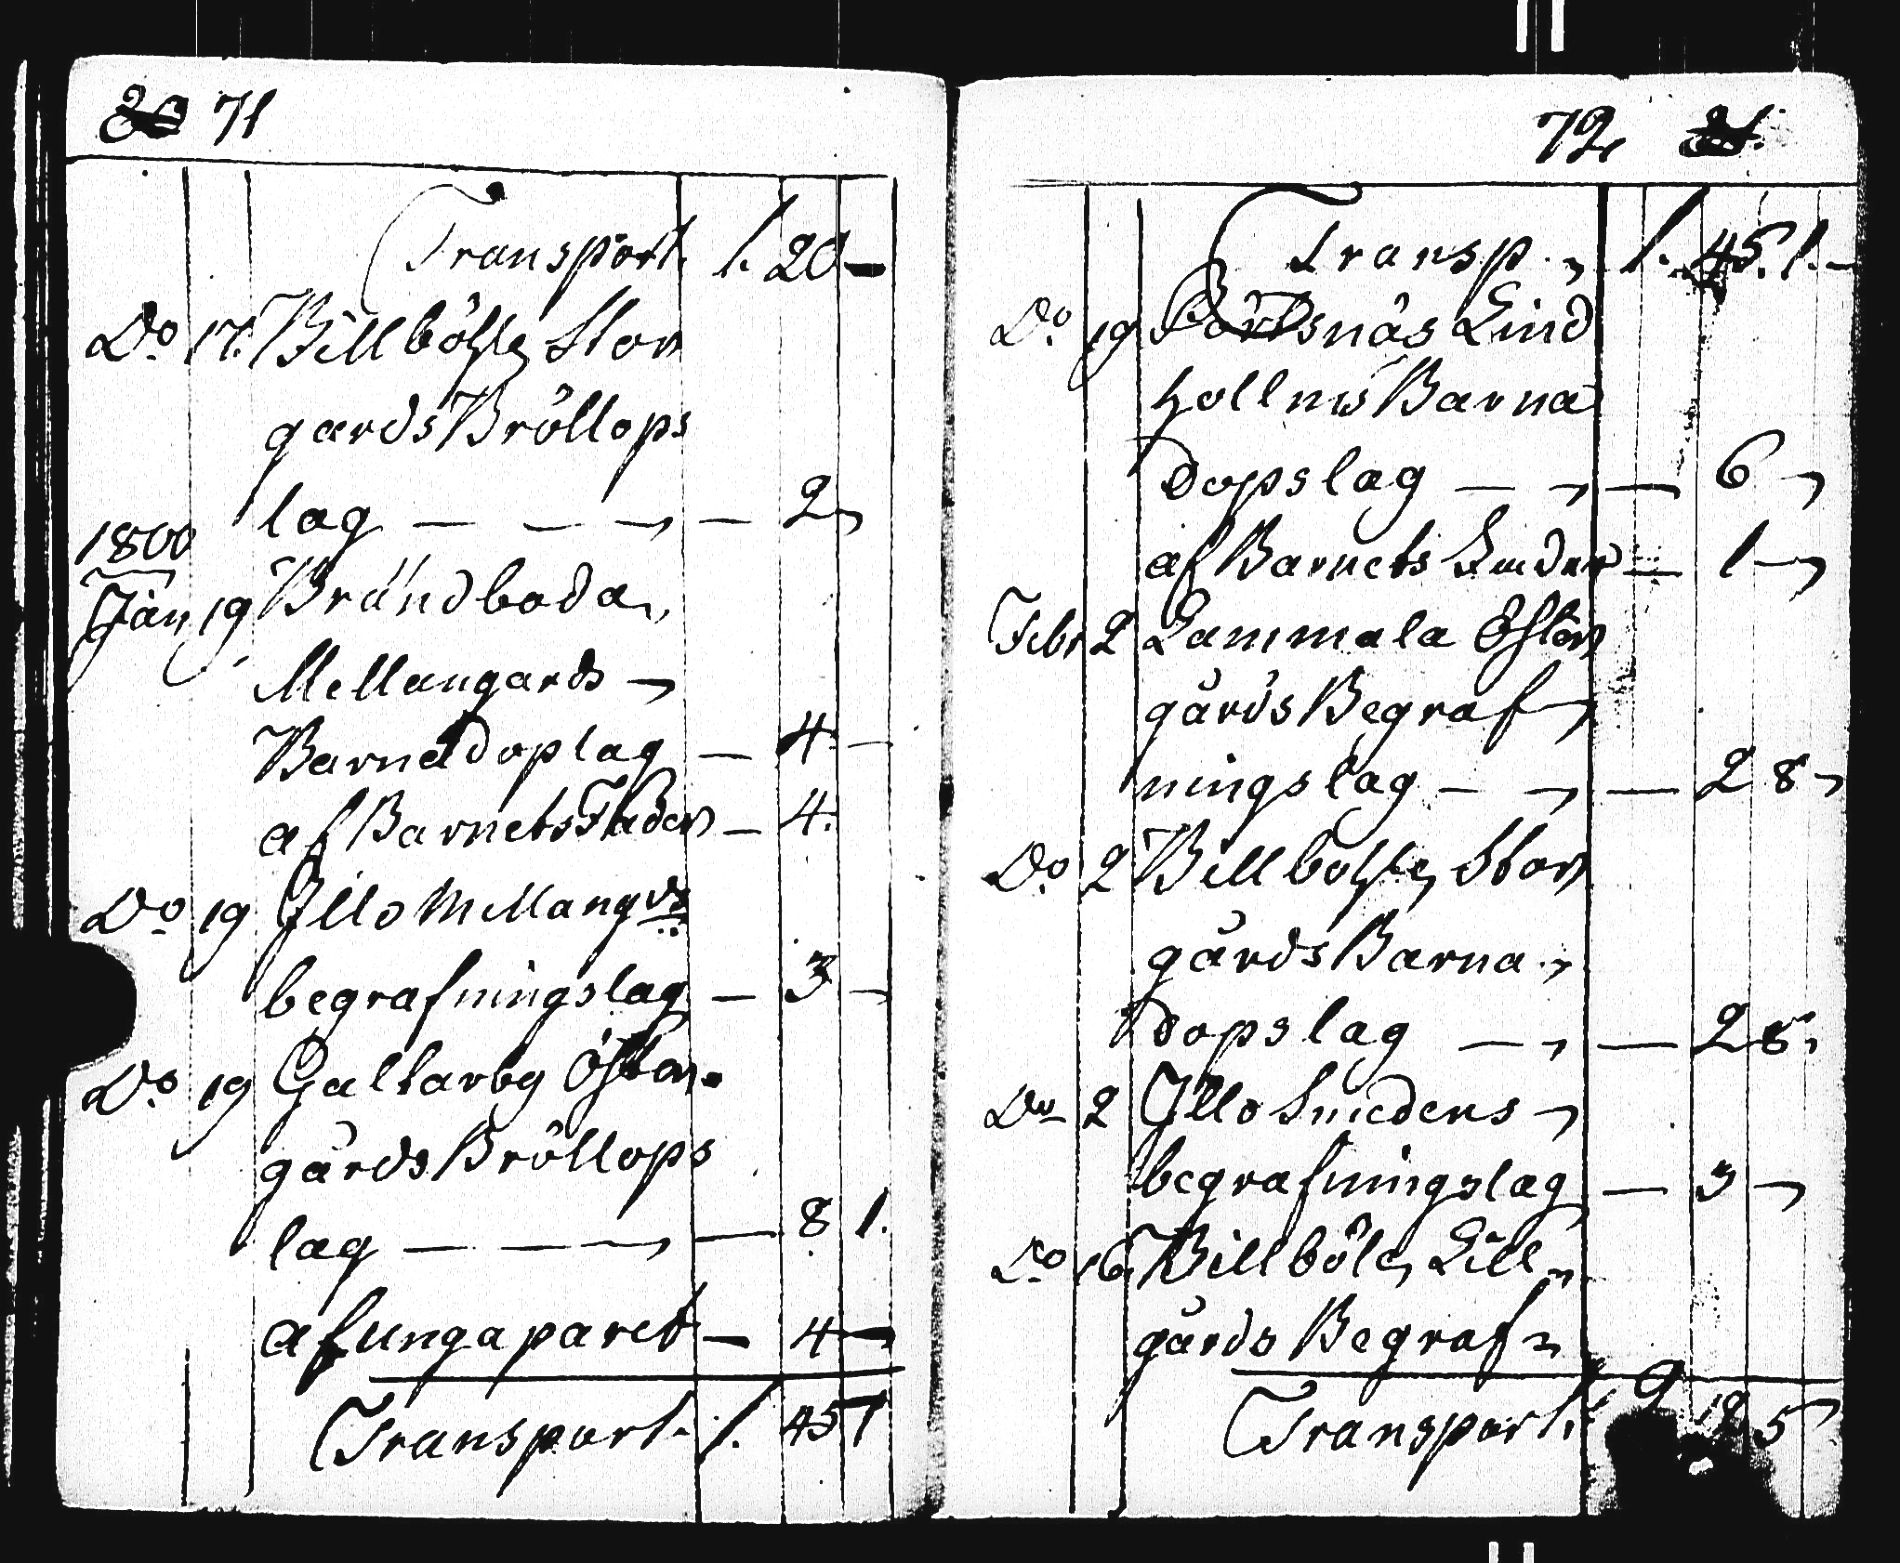 71
Transport. 1. 20 —
Do 17. Billböhle Stor
gards Bröllops
lag — — — — 2
1800
Jan 19 Brändboda
Mellangards
Barnadoplag — 4. —
af Barnets Fader — 4.
Do 19 Jllo Mellangds
begrafningslag — 3 —
Do 19 Galtarby Öster
gårds Bröllops
lag — — — — 8 1.
af ungaparet — 4 —
Transport. 1. 45 1
72
Transp. 1. 45. 1. —
Do 19 Pörtsnäs Lind
hollms Barna
dopslag — — 6
af Barnets — 1 —
Febr 2 Lammala Öster
gårds Begraf
ningslag — — 2 8
Do 2 Billbohle Stor
gårds Barna
dopslag — — 2 8
Do 2 Jllo Smedens
begrafningslag — 3 —
Do 16 Billböle Lill
gårds Begraf
Transport. 2 12 5